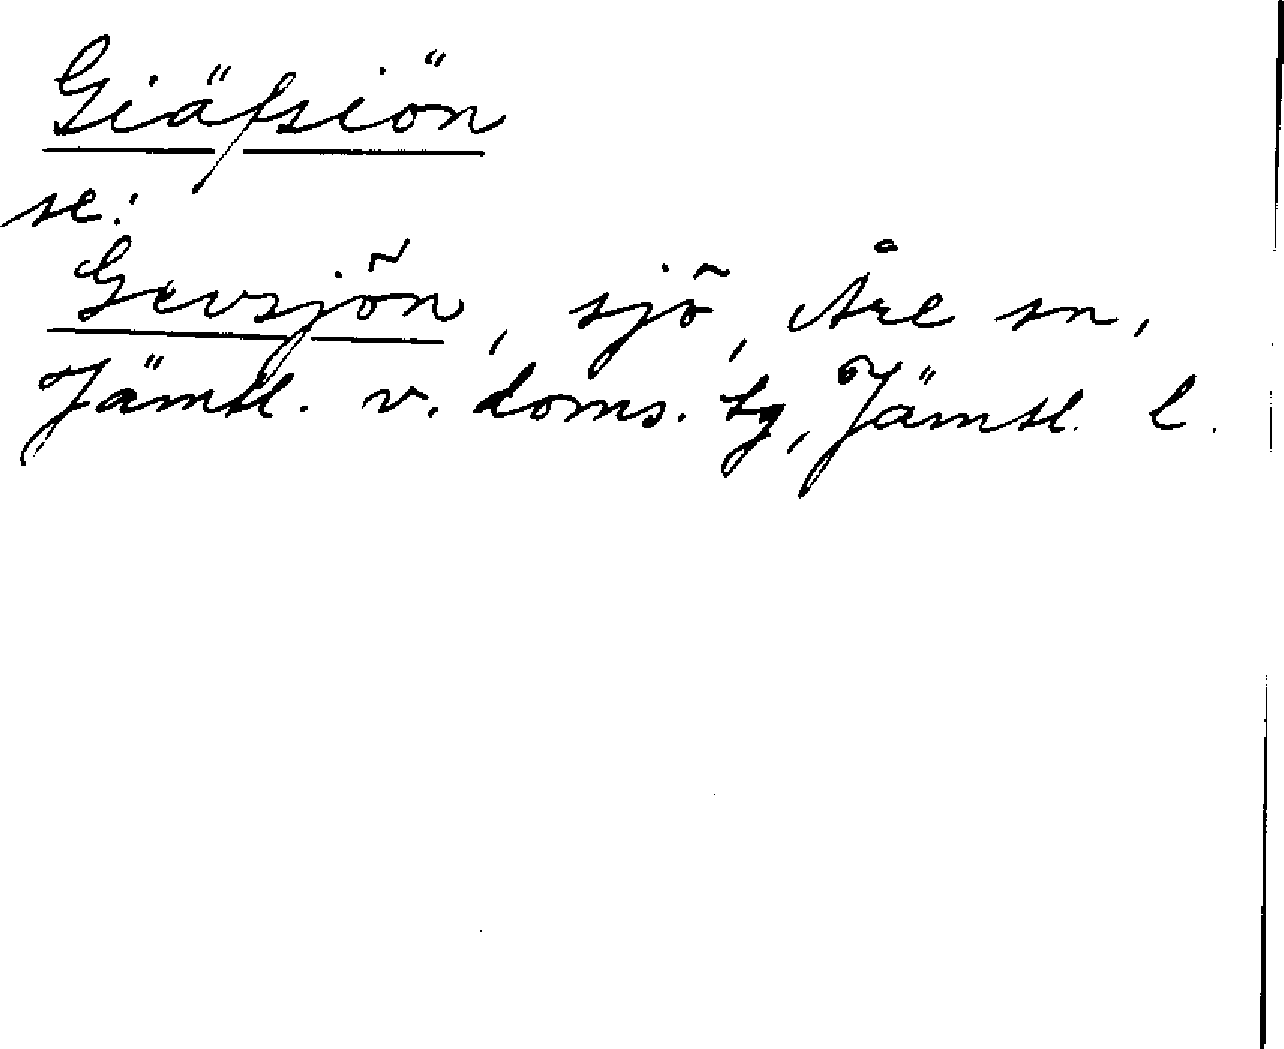 Giäfsiön
se:
Gevsjön, sjö, Åre sn,
Jämtl. v. doms. tg, Jämtl. l.